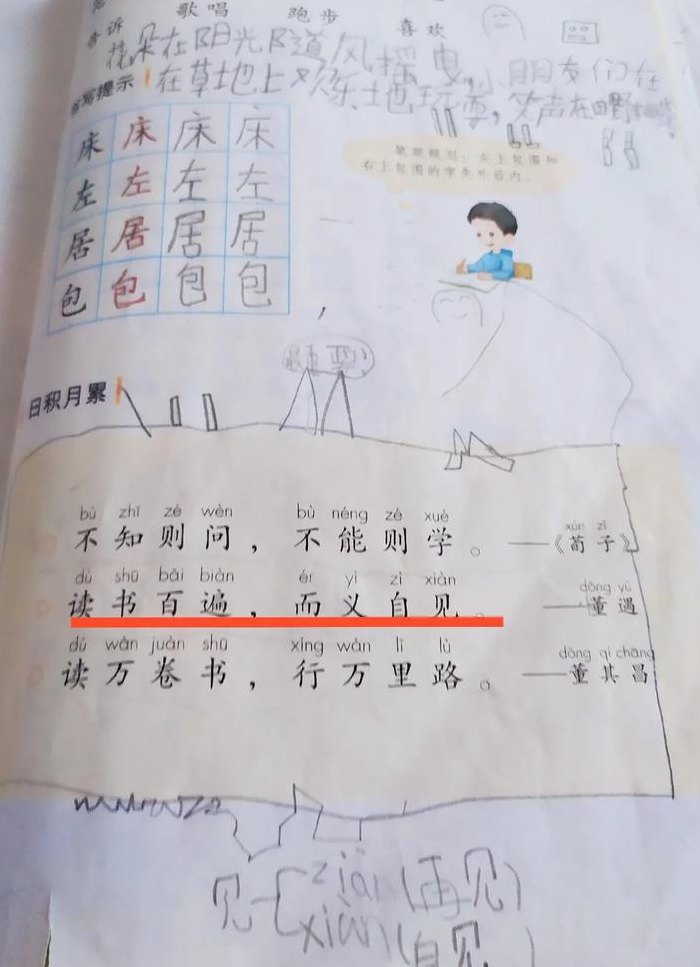 告诉 歌唱 跑步 喜欢
花朵在阳光下道风摇曳,小朋友们在
书写提示 在草地上欢乐地玩耍,笑声在田野
笔顺规则:左上包围和
右上包围的字先外后内。
床 床 床 床
左 左 左 左
居 居 居 居
包 包 包 包
重要!
日积月累
bù zhī zé wèn bù néng zé xué xún zǐ
不知则问,不能则学。——《荀子》
dú shū bǎi biàn ér yì zì xiàn dǒng yù
读书百遍,而义自见。——董遇
dú wàn juàn shū xíng wàn lǐ lù dǒng qí chāng
读万卷书,行万里路。——董其昌
见 jiàn(再见)
xiàn(自见